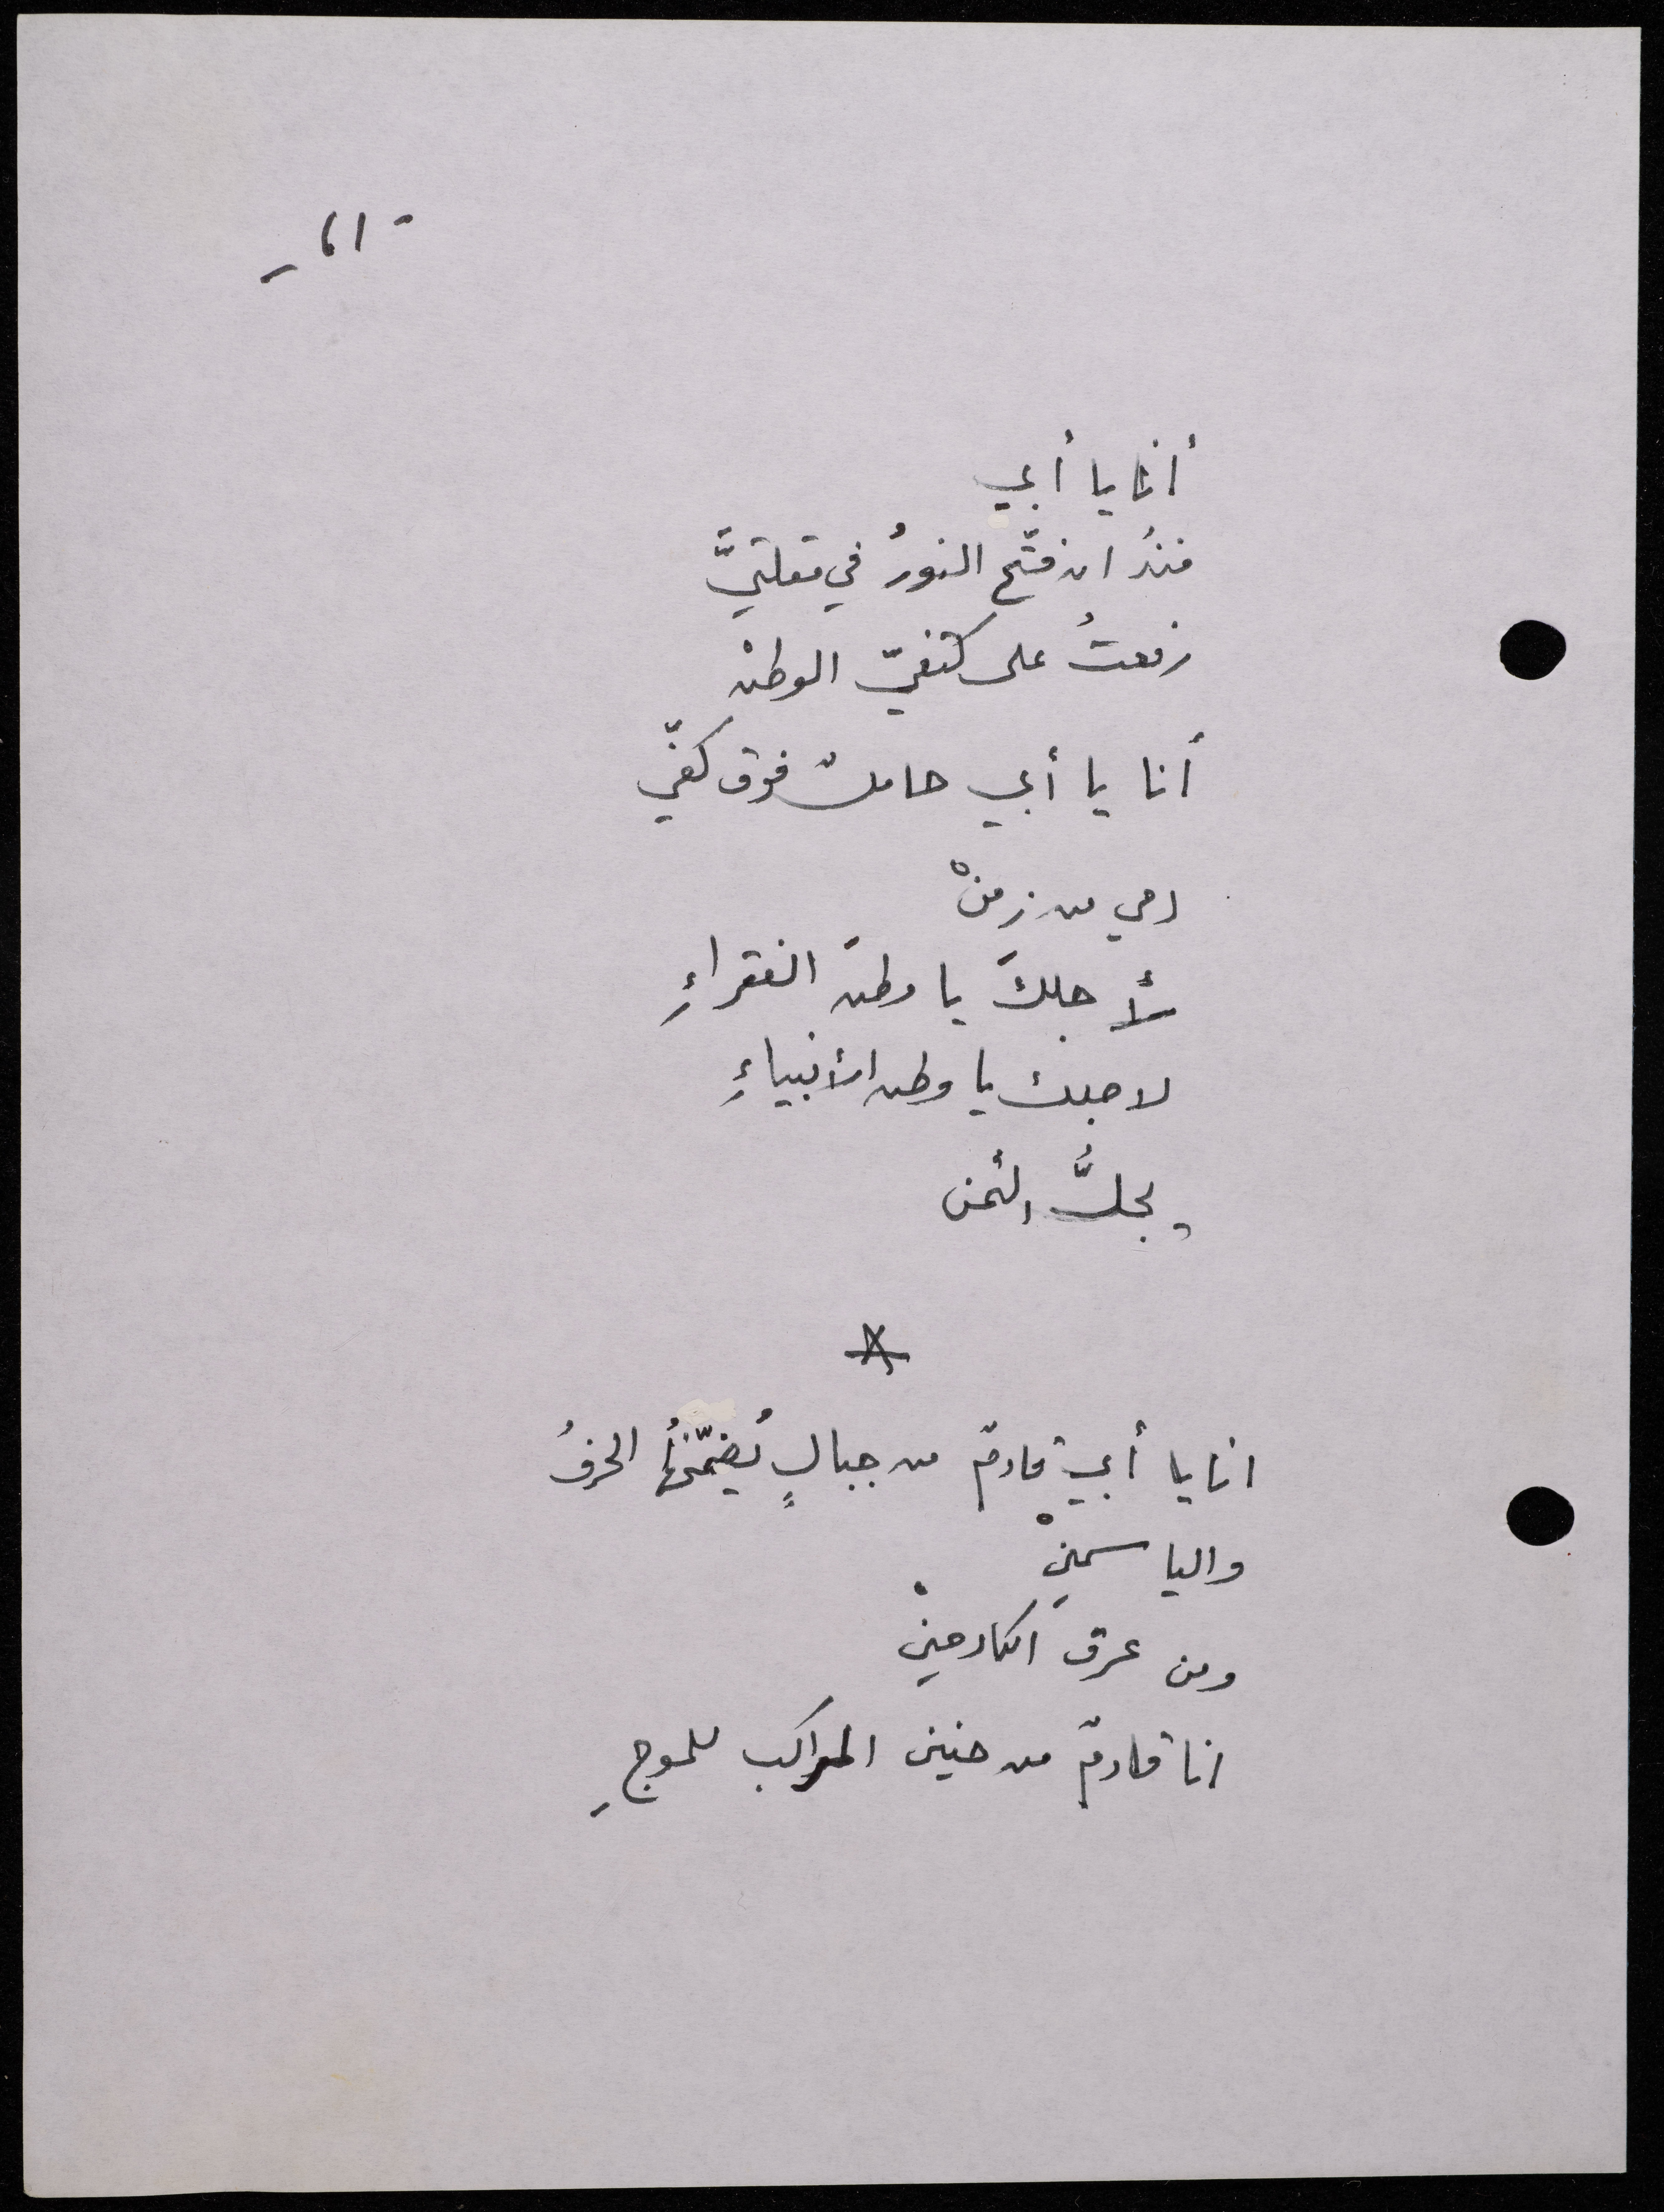 أنا يا أبي
منذُ ان فتّح النورُ في مقلتيَّ
رفعتُ على كتفيّ الوطنْ
أنا يا أبي حاملٌ فوق كفّي
دمي من زمنْ
لأجلكَ يا وطنَ الفقراءِ
لاجلك يا وطن الأنبياءِ
يجلُّ الثمن
*
انا يا أبي قادمٌ من جبالٍ يُضمّخُها الحزنُ
والياسمينْ
ومن عرق الكادحينْ
انا قادمٌ من حنين المراكب للموجِ